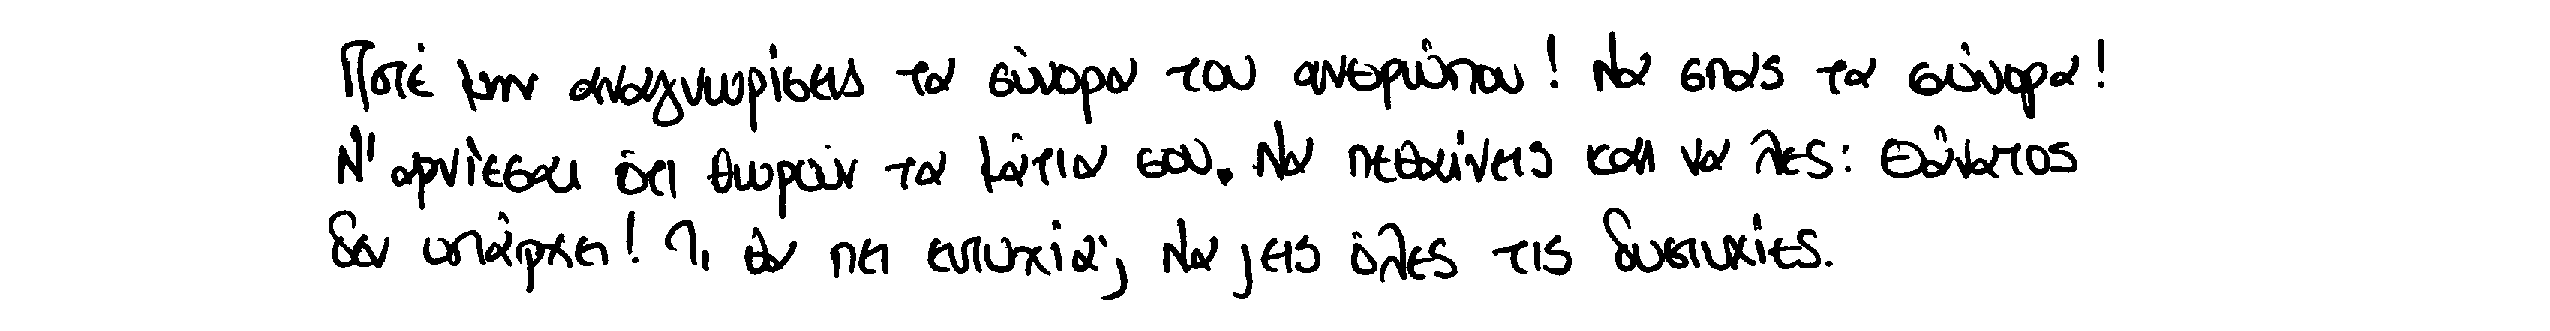 Ποτέ μην αναγνωρίσεις τα σύνορα του ανθρώπου! Να σπας τα σύνορα!
Ν' αρνιέσαι ότι θωρούν τα μάτια σου. Να πεθαίνεις και να λες: Θάνατος
δεν υπάρχει! Τι θα πει ευτυχία; Να ζεις όλες τις δυστυχίες.